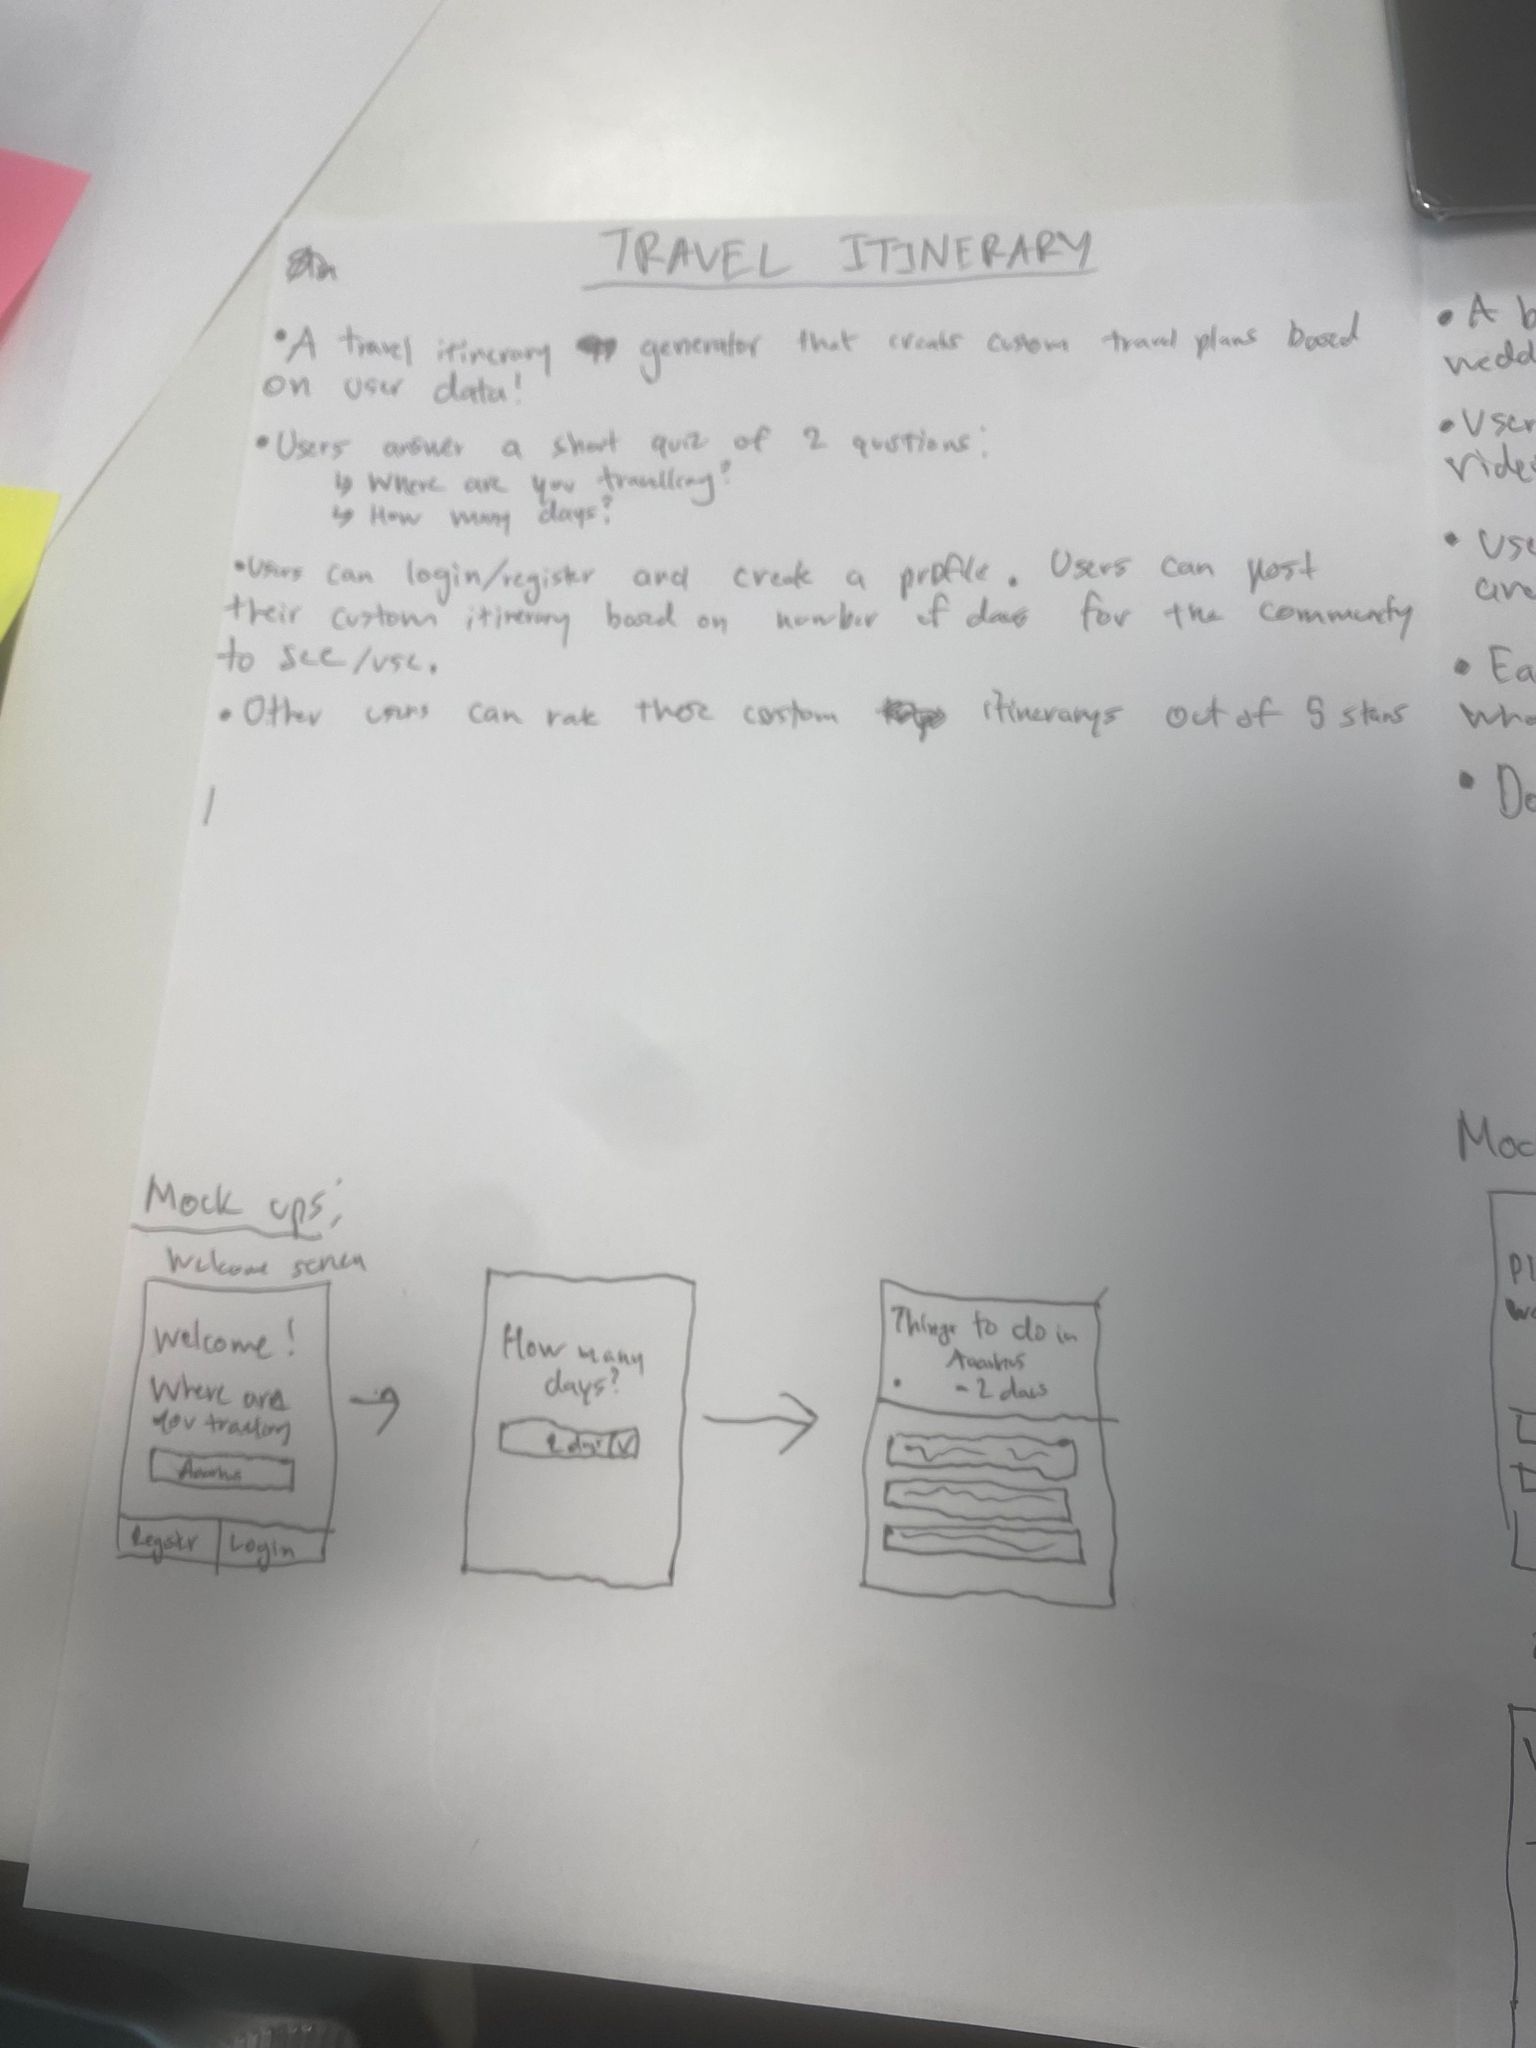 TRAVEL ITINERARY
• A travel itinerary generator that creats custom travel plans based
on user data!
• Users answer a short quiz of 2 qustions:
↳ Where are you travelling?
↳ How many days?
• Users can login/register and create a profile. Users can post
their custom itinerary based on number of days for the community
to see/use.
• Other users can rate these custom itinerarys out of 5 stars
Mock ups:
Welcome screen
Welcome!
Where are
you
Aarhus
Register Login
How many
days?
2 days
Things to do in
Aarhus
- 2 days
• A b
wedd
• User
vide
• Use
are
• Ea
Who
• Do
Moc
Pl